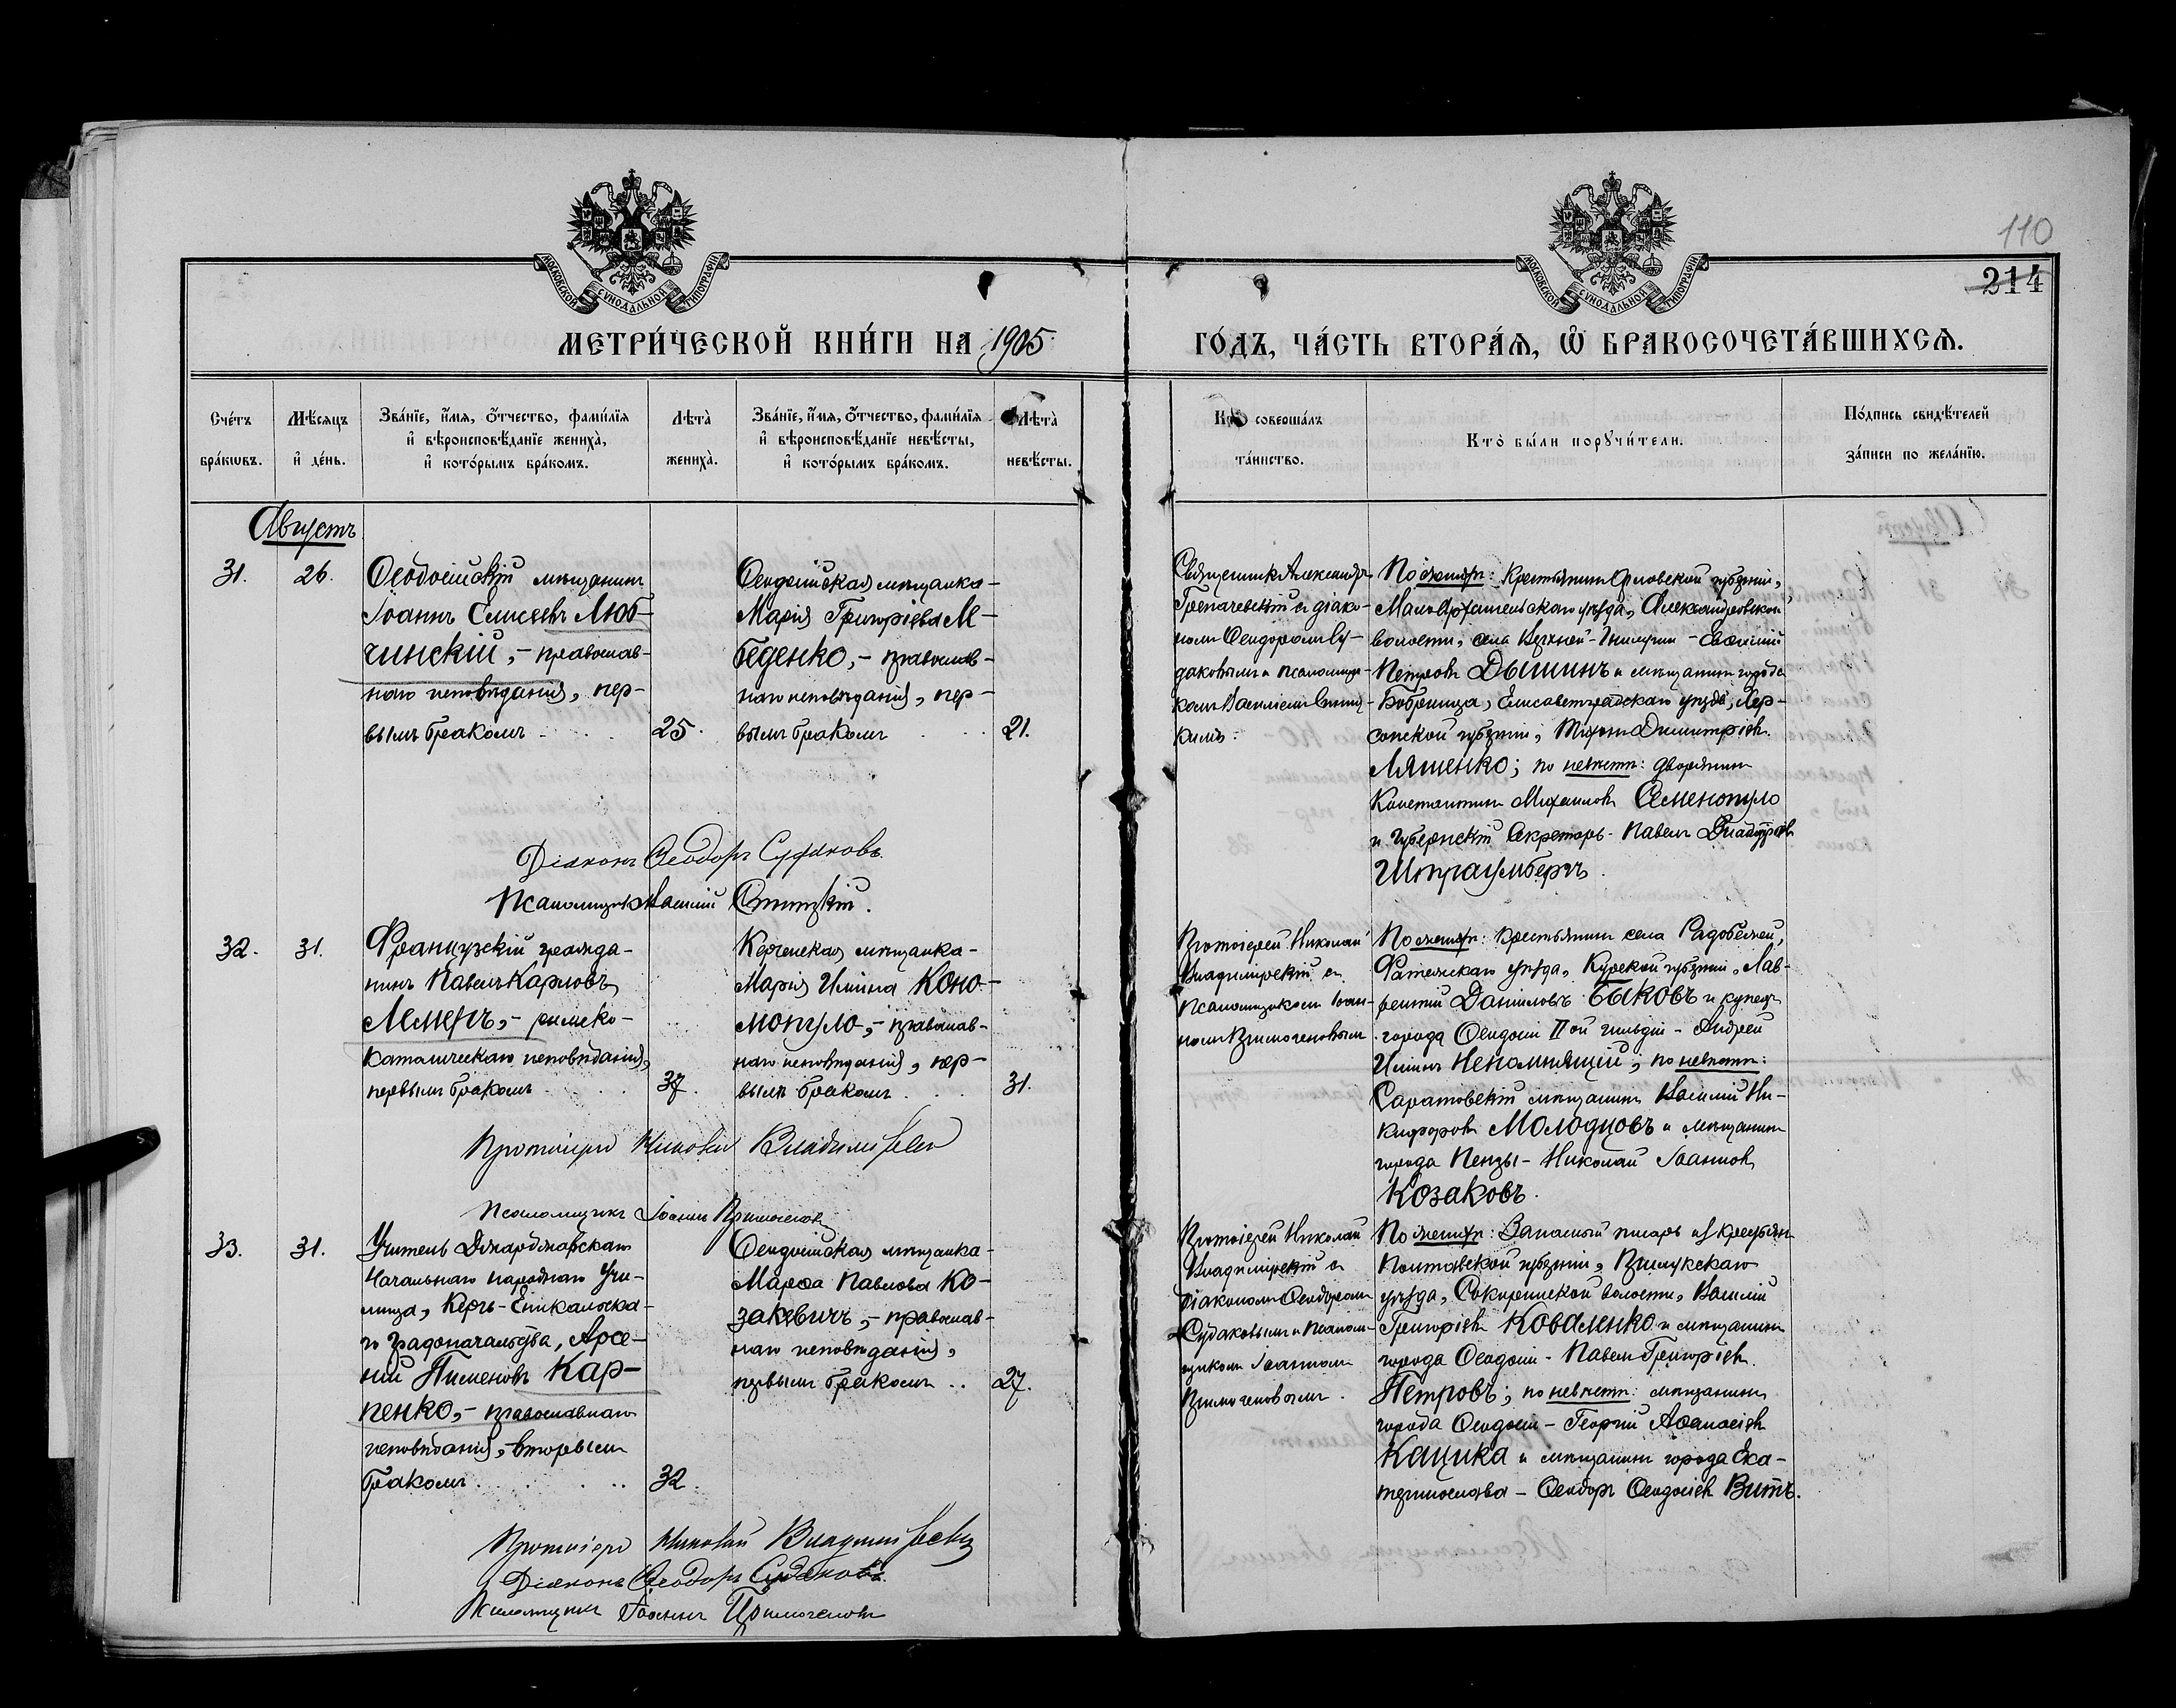 110
214
МОСКОВСКОЙ СѴНОДАЛЬНОЙ ТИПОГРАФІИ
МОСКОВСКОЙ СѴНОДАЛЬНОЙ ТИПОГРАФІИ
МЕТРИ́ЧЕСКОЙ КНИ́ГИ НА 1905
ГО́ДЪ, ЧА́СТЬ ВТОРА́Ѧ, Ѽ БРАКОСОЧЕТА́ВШИХСѦ.
Сче́тъ
бра́кѡвъ.
Мѣ́сяцъ
и де́нь.
Зва́нїе, и́мя, о́тчество, фами́лїя
и вѣроисповѣ́данїе жениха̀,
и кото́рымъ бра́комъ.
Лѣта̀
жениха̀.
Зва́нїе, и́мя, о́тчество, фами́лїя
и вѣроисповѣ́данїе невѣ́сты,
и кото́рымъ бра́комъ.
Лѣта̀
невѣ́сты.
Кто̀ соверша́лъ
та́инство.
Кто̀ бы́ли порꙋчи́тели.
По́дпись свидѣ́телей
за́писи по жела́нїю.
Августъ
31.
26.
Ѳеодосійскій мѣщанинъ
Іоаннъ Елисеевъ Люб-
чинскій,- православ-
наго исповѣданія, пер-
вымъ бракомъ
25.
Ѳеодосійская мѣщанка-
Марія Григоріева Ле-
беденко,- православ-
наго исповѣданія, пер-
вымъ бракомъ
21.
Священникъ Александръ
діако-
номъ Ѳеодоромъ Су-
даковымъ и псаломщи-
комъ Василіемъ
По женихѣ: крестьянинъ Орловской губерніи,
Малоархангельскаго уѣзда, Александровской
волости, села Верхней-Гнилуши - Евѳимій
Петровъ Дышинъ и мѣщанинъ города
Бобринца, Елисаветградскаго уѣзда, Хер-
сонской губерніи, Тихонъ Димитріевъ
Ляшенко; по невѣстѣ: дворянинъ
Константинъ Михаиловъ Семенопуло
и губернскій секретарь Павелъ
Штраумбергъ.
Діаконъ Ѳеодоръ Судаковъ.
Псаломщикъ Василій
32.
31.
Французскій гражда-
нинъ Павелъ Карловъ
Лемерь,- римско-
католическаго исповѣданія,
первымъ бракомъ
37.
Керченская мѣщанка-
Марія Ильина Коно-
мопуло,- православ-
наго исповѣданія, пер-
вымъ бракомъ
31.
Протоіерей Николай
Владимірскій съ
псаломщикомъ Іоан-
номъ Примогеновымъ
По женихѣ: крестьянинъ села Радобежей,
Фатежскаго уѣзда, Курской губерніи, Лав-
рентій Даніиловъ Быковъ и купецъ
города Ѳеодосіи II ой гильдіи - Андрей
Ильинъ Непомнящій; по невѣстѣ:
Саратовскій мѣщанинъ Василій Ни-
кифоровъ Молодцовъ и мѣщанинъ
города Пензы - Николай Іоанновъ
Козаковъ.
Протоіерей Николай Владимірскій
Псаломщикъ Іоаннъ Примогеновъ
33.
31.
Учитель Джарджавскаго
Начальнаго народнаго учи-
лища, Керчь-Еникальска-
го градоначальства, Арсе-
ній Пименовъ Кар-
пенко,- православнаго
исповѣданія, вторымъ
бракомъ
32.
Ѳеодосійская мѣщанка-
Марѳа Павлова Ко-
закевичъ,- православ-
наго исповѣданія,
первымъ бракомъ
27.
Протоіерей Николай
Владимірскій съ
діакономъ Ѳеодоромъ
Судаковымъ и псалом-
щикомъ Іоанномъ
Примогеновымъ.
По женихѣ: Запасный писарь изъ крестьянъ
Полтавской губерніи, Прилукскаго
уѣзда, Сокиринской волости, Василій
Григоріевъ Коваленко и мѣщанинъ
города Ѳеодосіи - Павелъ Григоріевъ
Петровъ; по невѣстѣ: мѣщанинъ
города Ѳеодосіи - Георгій Аѳанасіевъ
Кацика и мѣщанинъ города Ека-
теринослава - Ѳеодоръ Ѳеодосіевъ Витъ.
Протоіерей Николай Владимірскій
Діаконъ Ѳеодоръ Судаковъ.
Псаломщикъ Іоаннъ Примогеновъ